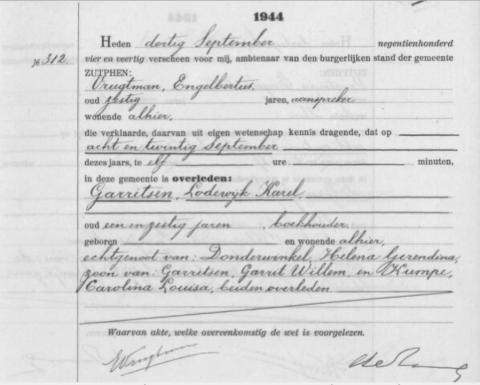 1944
Heden dertig September negentienhonderd
№ 312.
vier en veertig verscheen voor mij, ambtenaar van den burgerlijken stand der gemeente
ZUTPHEN:
Vrugtman, Engelbertus,
oud zestig jaren, aanspreker
wonende alhier,
die verklaarde, daarvan uit eigen wetenschap kennis dragende, dat op
acht en twintig September
dezes jaars, te elf ure minuten,
in deze gemeente is overleden:
Garritsen, Lodewijk Karel,
oud een en zestig jaren, boekhouder,
geboren en wonende alhier,
echtgenoot van: Donderwinkel, Helena Gerendina,
zoon van: Garritsen, Garrit Willem, en Kumpe,
Carolina Louisa, beiden overleden
Waarvan akte, welke overeenkomstig de wet is voorgelezen.